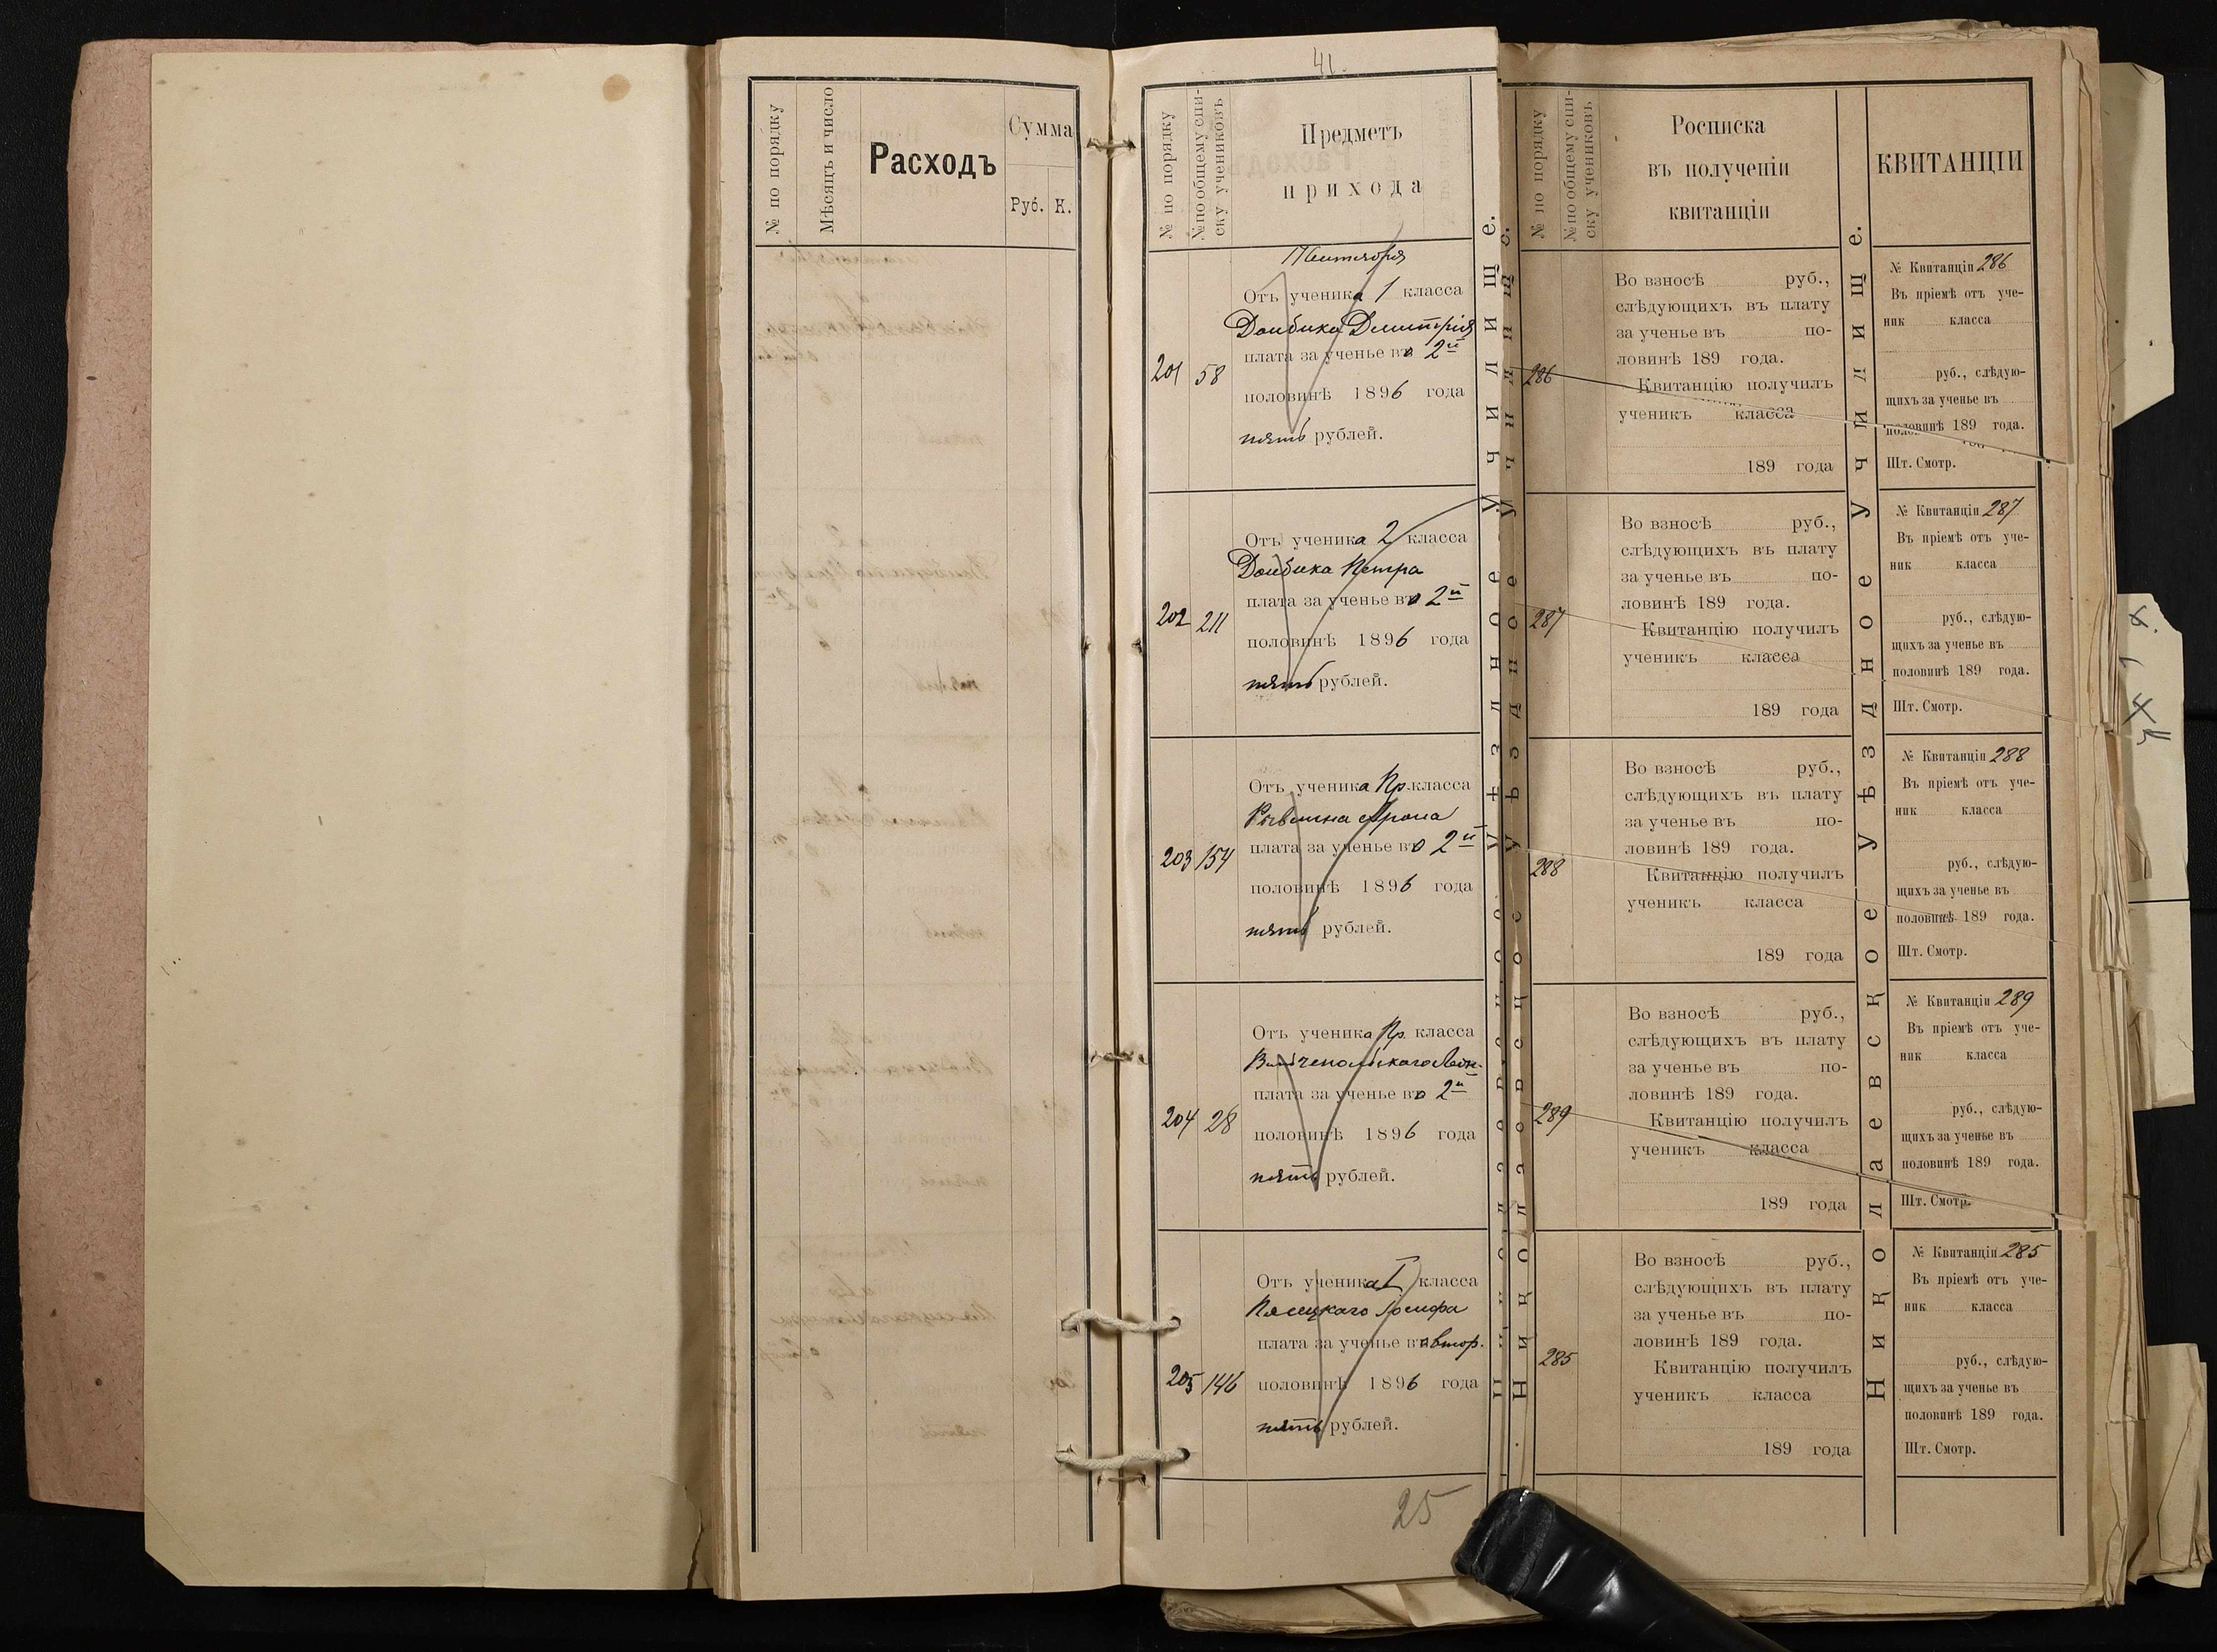 № по порядку
Мѣсяцъ и число
Расходъ
Сумма
Руб. К.
41.
№ по порядку
№ по общему спи-
ску учениковъ
Предметъ
прихода
201 58
Отъ ученика 1 класса
Домбика Димитрія
плата за ученье во 2й
половинѣ 1896 года
пять рублей.
202 211
Отъ ученика 2 класса
Домбика Петра
плата за ученье во 2й
половинѣ 1896 года
пять рублей.
203 154
Отъ ученика Пр. класса
Арона
плата за ученье во 2й
половинѣ 1896 года
пять рублей.
204 28
Отъ ученика Пр. класса
плата за ученье во 2й
половинѣ 1896 года
пять рублей.
205 146
Отъ ученика I класса
Іосифа
плата за ученье во втор.
половинѣ 1896 года
пять рублей.
25
Училище.
Уѣздное
№ по порядку
№ по общему спи-
ску учениковъ
Росписка
въ полученіи
квитанціи
286
Во взносѣ руб.,
слѣдующихъ въ плату
за ученье въ по-
ловинѣ 189 года.
Квитанцію получилъ
ученикъ класса
189 года
287
Во взносѣ руб.,
слѣдующихъ въ плату
за ученье въ по-
ловинѣ 189 года.
Квитанцію получилъ
ученикъ класса
189 года
288
Во взносѣ руб.,
слѣдующихъ въ плату
за ученье въ по-
ловинѣ 189 года.
Квитанцію получилъ
ученикъ класса
189 года
289
Во взносѣ руб.,
слѣдующихъ въ плату
за ученье въ по-
ловинѣ 189 года.
Квитанцію получилъ
ученикъ класса
189 года
285
Во взносѣ руб.,
слѣдующихъ въ плату
за ученье въ по-
ловинѣ 189 года.
Квитанцію получилъ
ученикъ класса
189 года
Николаевское Уѣздное Училище.
КВИТАНЦІИ
№ Квитанціи 286
Въ пріемѣ отъ уче-
ник класса
руб., слѣдую-
щихъ за ученье въ
половинѣ 189 года.
Шт. Смотр.
№ Квитанціи 287
Въ пріемѣ отъ уче-
ник класса
руб., слѣдую-
щихъ за ученье въ
половинѣ 189 года.
Шт. Смотр.
№ Квитанціи 288
Въ пріемѣ отъ уче-
ник класса
руб., слѣдую-
щихъ за ученье въ
половинѣ 189 года.
Шт. Смотр.
№ Квитанціи 289
Въ пріемѣ отъ уче-
ник класса
руб., слѣдую-
щихъ за ученье въ
половинѣ 189 года.
Шт. Смотр.
№ Квитанціи 285
Въ пріемѣ отъ уче-
ник класса
руб., слѣдую-
щихъ за ученье въ
половинѣ 189 года.
Шт. Смотр.